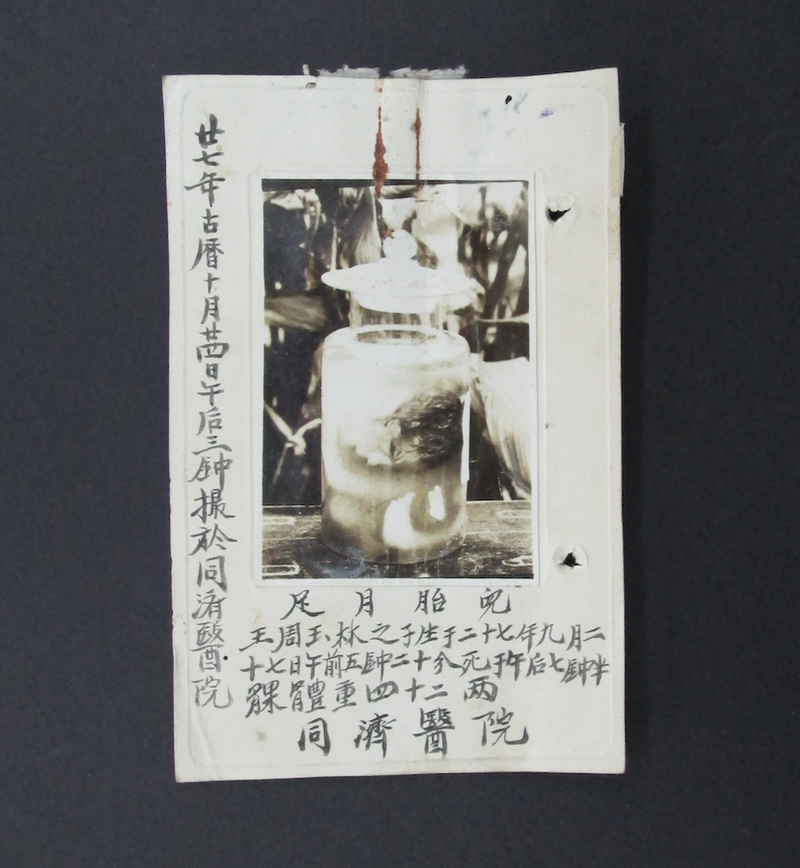 廿七年古暦十月廿四日午后三鈡撮於同濟醫院
足月胎兒
王周玉林之子生于二十七年九月二
十七日午前五鈡二十分死于午后七鈡半
髁體重四十二两
同濟醫院